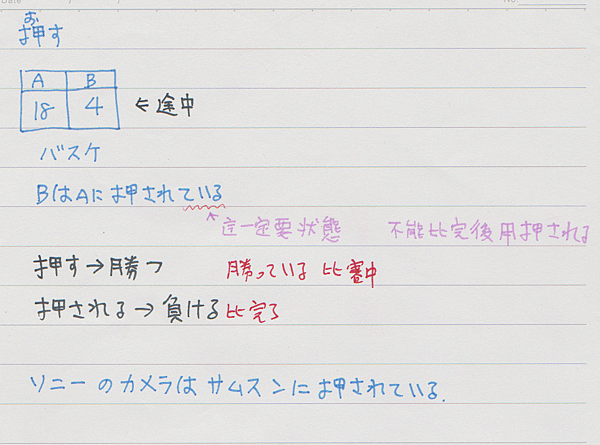 No.
お
押す
A B
18 4 ⇐途中
バスケ
BはAに押されている
↖這一定要状態 不能比完後用押される
押す→勝つ 勝っている 比賽中
押される→負ける 比完了
ソニーのカメラはサムスンに押されている.